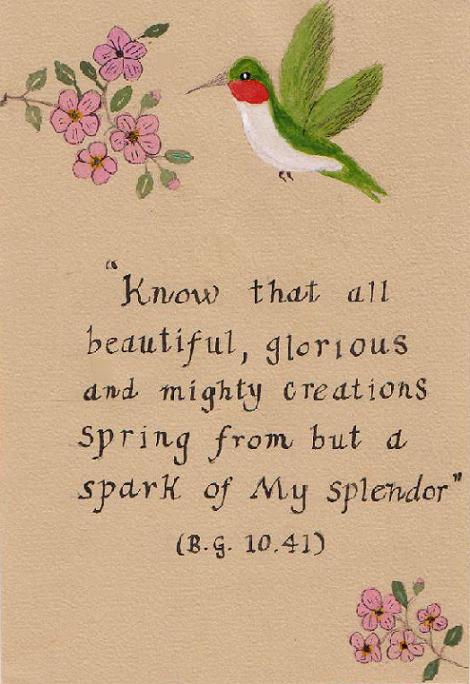 "Know that all
beautiful, glorious
and mighty creations
spring from but a
spark of My splendor"
(B.G. 10.41)